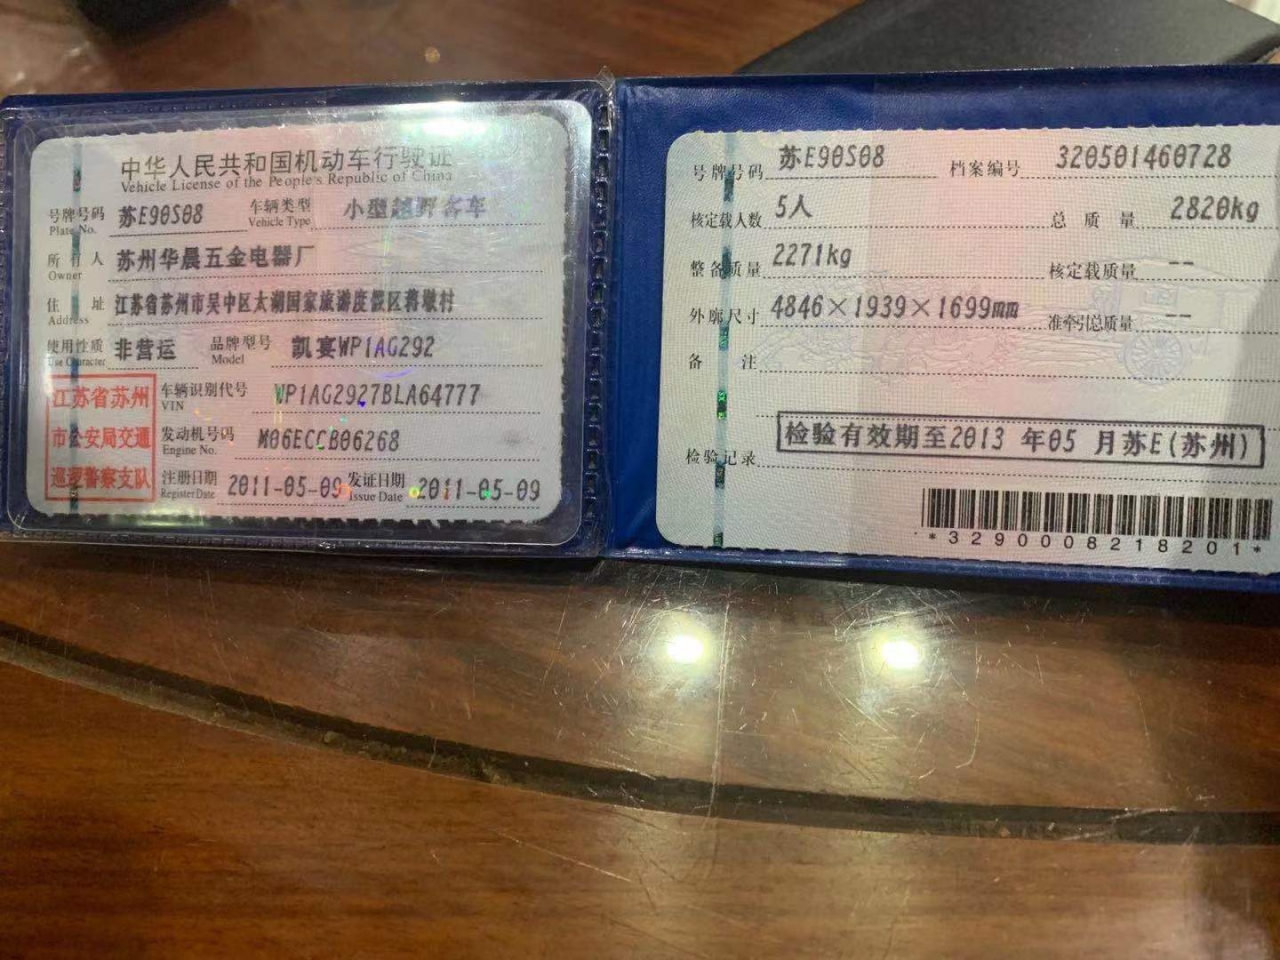 中华人民共和国机动车行驶证
Vehicle License of the People's Republic of China
号牌号码 苏E90S08 车辆类型 小型越野客车
Plate No. Vehicle Type
所有人 苏州华晨五金电器厂
Owner
住址 江苏省苏州市吴中区太湖国家旅游度假区蒋墩村
Address
使用性质 非营运 品牌型号 凯宴WP1AG292
Use Character Model
江苏省苏州
市公安局交通
巡逻警察支队
车辆识别代号 WP1AG2927BLA64777
VIN
发动机号码 M06ECCB06268
Engine No.
注册日期 2011-05-09 发证日期 2011-05-09
Register Date Issue Date
号牌号码 苏E90S08 档案编号 320501460728
核定载人数 5人 总质量 2820kg
整备质量 2271kg 核定载质量 --
外廓尺寸 4846×1939×1699mm 准牵引总质量 --
备注
检验记录 检验有效期至2013 年05 月苏E(苏州)
*3290008218201*